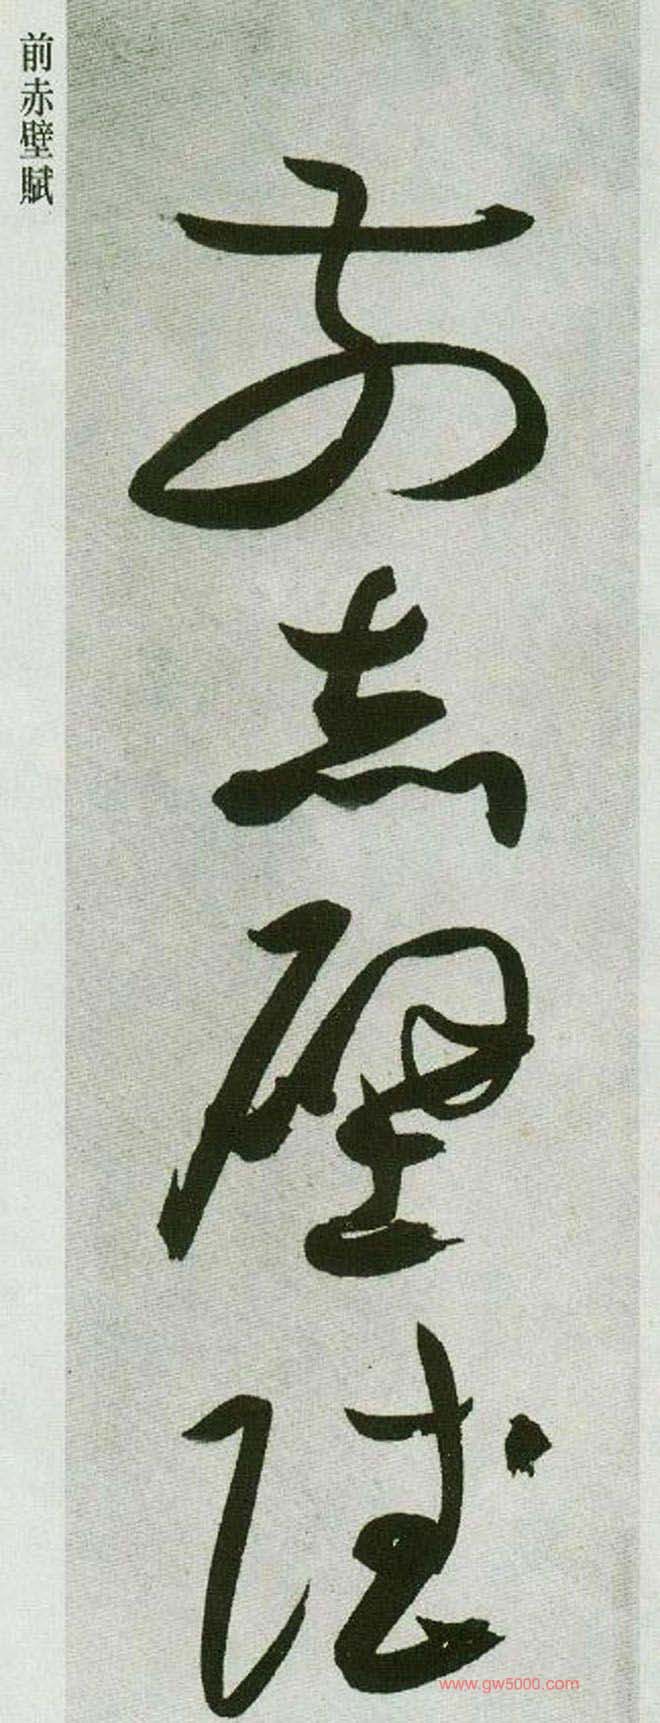 前赤壁賦
前赤壁賦
www.gw5000.com